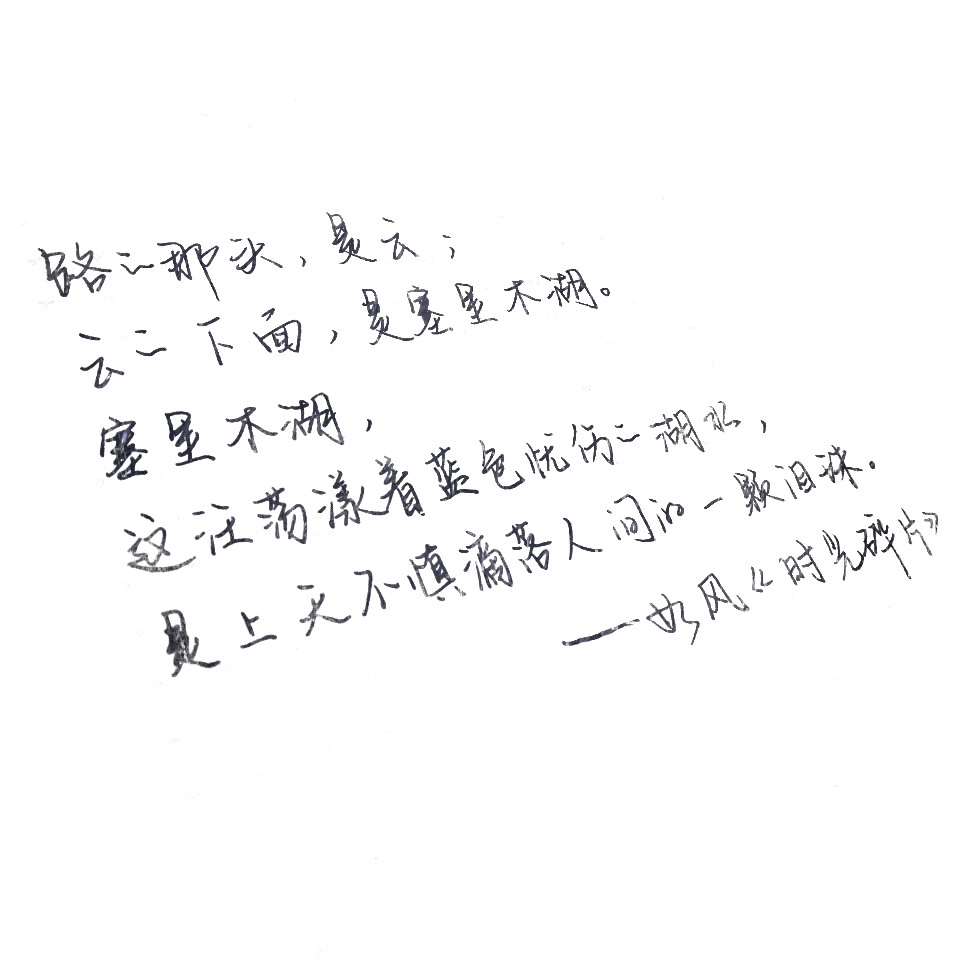 路的那头，是云；
云的下面，是塞里木湖。
塞里木湖，
这汪荡漾着蓝色忧伤的湖水，
是上天不慎滴落人间的一颗泪珠。
——如风《时光碎片》